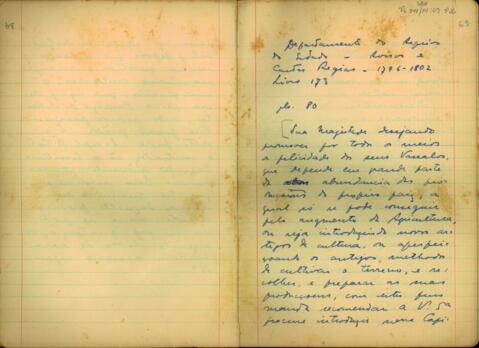 64
63
Departamento do Registro
do Estado — Avisos e
Cartas Regias — 1796-1802
Livro 173
fls. 80
[Sua Magestade desejando
promover por todos os meios
a felicidade dos seus Vassalos,
que depende em grande parte
da abundancia das pro
ducções do proprio paiz, a
qual só se pode conseguir
pelo augmento da Agricultura,
ou seja introduzindo novos ar
tigos de cultura, ou aperfei
çoando os antigos, methodos
de cultivar o terreno, e re
colher, e preparar as suas
producçoens, com estes fins
manda recomendar a V. Sª
procure introduzir nessa Capi-